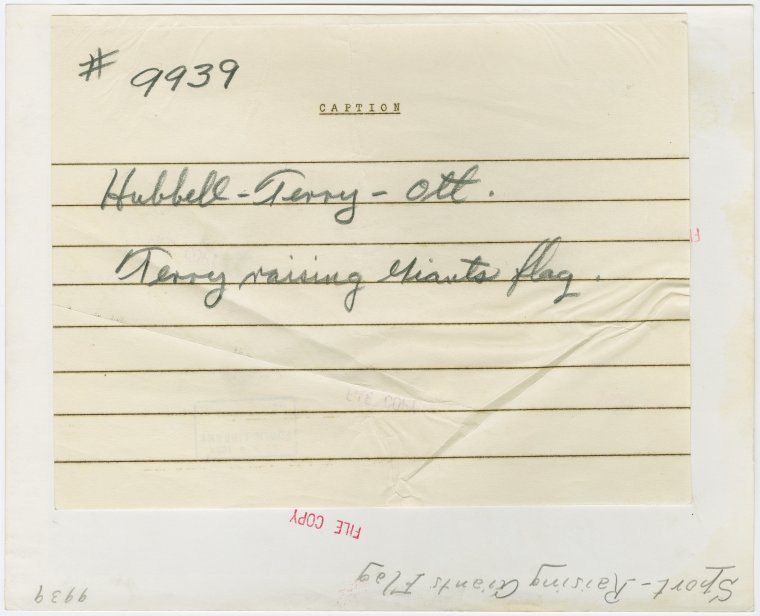 # 9939
CAPTION
Hubbell - Terry - Ott.
Terry raising Giants flag.
FILE COPY
Sport - Raising Giants Flag
9939